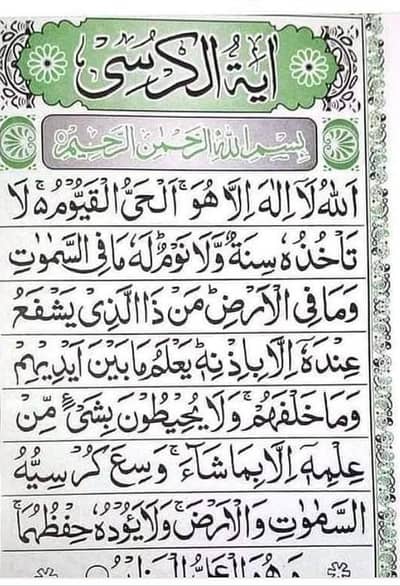 اٰیَةُ الْکُرْسِی
بِسْمِ اللّٰهِ الرَّحْمٰنِ الرَّحِیْمِ
اَللّٰهُ لَاۤ اِلٰهَ اِلَّا هُوَ ۚ اَلْحَیُّ الْقَیُّوْمُ ۬ۚ لَا
تَاْخُذُهٗ سِنَةٌ وَّلَا نَوْمٌ ؕ لَهٗ مَا فِی السَّمٰوٰتِ
وَمَا فِی الْاَرْضِ ؕ مَنْ ذَا الَّذِیْ یَشْفَعُ
عِنْدَهٗۤ اِلَّا بِاِذْنِهٖ ؕ یَعْلَمُ مَا بَیْنَ اَیْدِیْهِمْ
وَمَا خَلْفَهُمْ ۚ وَلَا یُحِیْطُوْنَ بِشَیْءٍ مِّنْ
عِلْمِهٖۤ اِلَّا بِمَا شَآءَ ۚ وَسِعَ کُرْسِیُّهُ
السَّمٰوٰتِ وَالْاَرْضَ ۚ وَلَا یَـُٔوْدُهٗ حِفْظُهُمَا ۚ